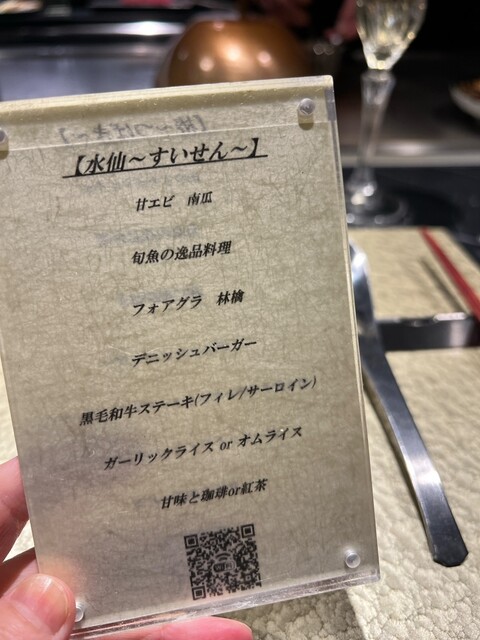 【水仙～すいせん～】
甘エビ　南瓜
旬魚の逸品料理
フォアグラ　林檎
デニッシュバーガー
黒毛和牛ステーキ(フィレ/サーロイン)
ガーリックライス or オムライス
甘味と珈琲or紅茶